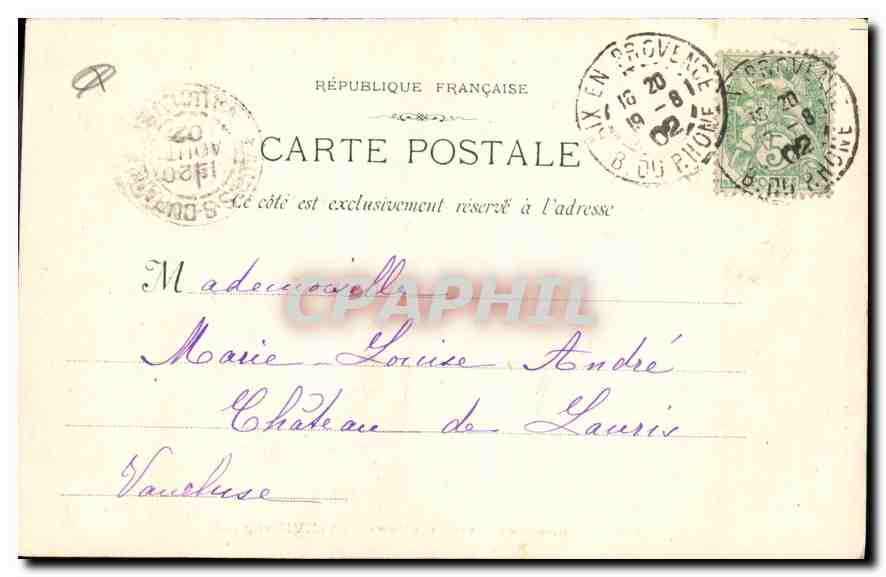 RÉPUBLIQUE FRANÇAISE
CARTE POSTALE
Ce côté est exclusivement réservé à l'adresse
Mademoiselle
Marie-Louise André
Château de Lauris
Vaucluse
AIX EN PROVENCE
16 20
19 -8
02
B. DU RHONE
PROVENCE
16 20
-8
02
B. DU RHONE
5
AOUT
02
CPAPHIL